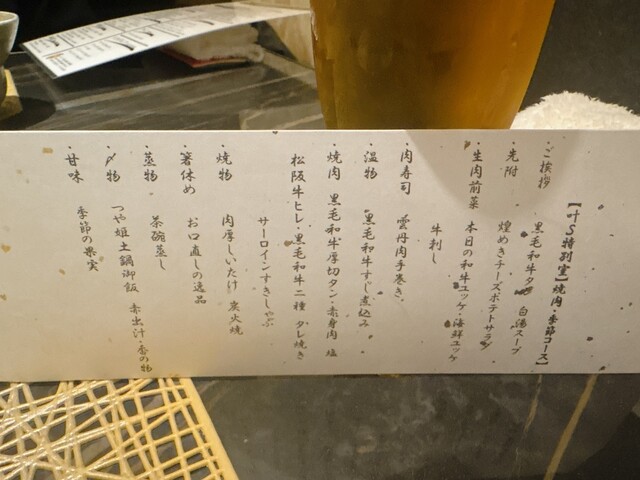 【叶S特別室】焼肉・季節コース】
・ご挨拶 黒毛和牛タン 白湯スープ
・先附 煌めきチーズポテトサラダ
・生肉前菜 本日の和牛ユッケ・海鮮ユッケ
牛刺し
・肉寿司 雲丹肉手巻き
・温物 黒毛和牛すじ煮込み
・焼肉 黒毛和牛厚切タン・赤身肉 塩
松阪牛ヒレ・黒毛和牛二種 タレ焼き
サーロインすきしゃぶ
・焼物 肉厚しいたけ 炭火焼
・箸休め お口直しの逸品
・蒸物 茶碗蒸し
・〆物 つや姫土鍋御飯 赤出汁・香の物
・甘味 季節の果実